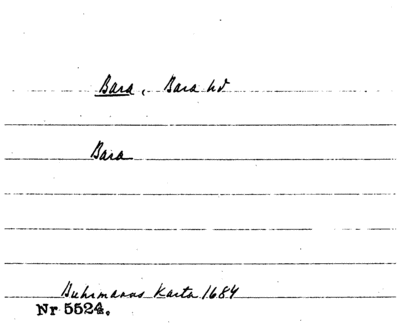 Bara, Bara hd
Bara
Buhrmanns Karta 1684
Nr 5524.